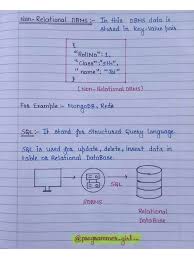 Non-Relational DBMS :- In this DBMS data is
stored in Key-Value pair.
{
"RollNo": 1,
"Class": "5th",
"name":
}
(Non-Relational DBMS)
For Example :- MongoDB, Redis
SQL :- It stand for Structured Query language.
SQL is used for update, delete, insert data in
table or Relational DataBase.
SQL
RDBMS
Relational
DataBase
@programmer_girl__